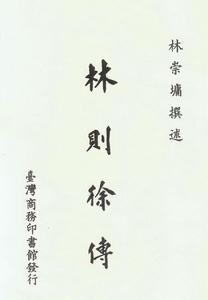 林崇墉撰述
林則徐傳
臺灣商務印書館發行